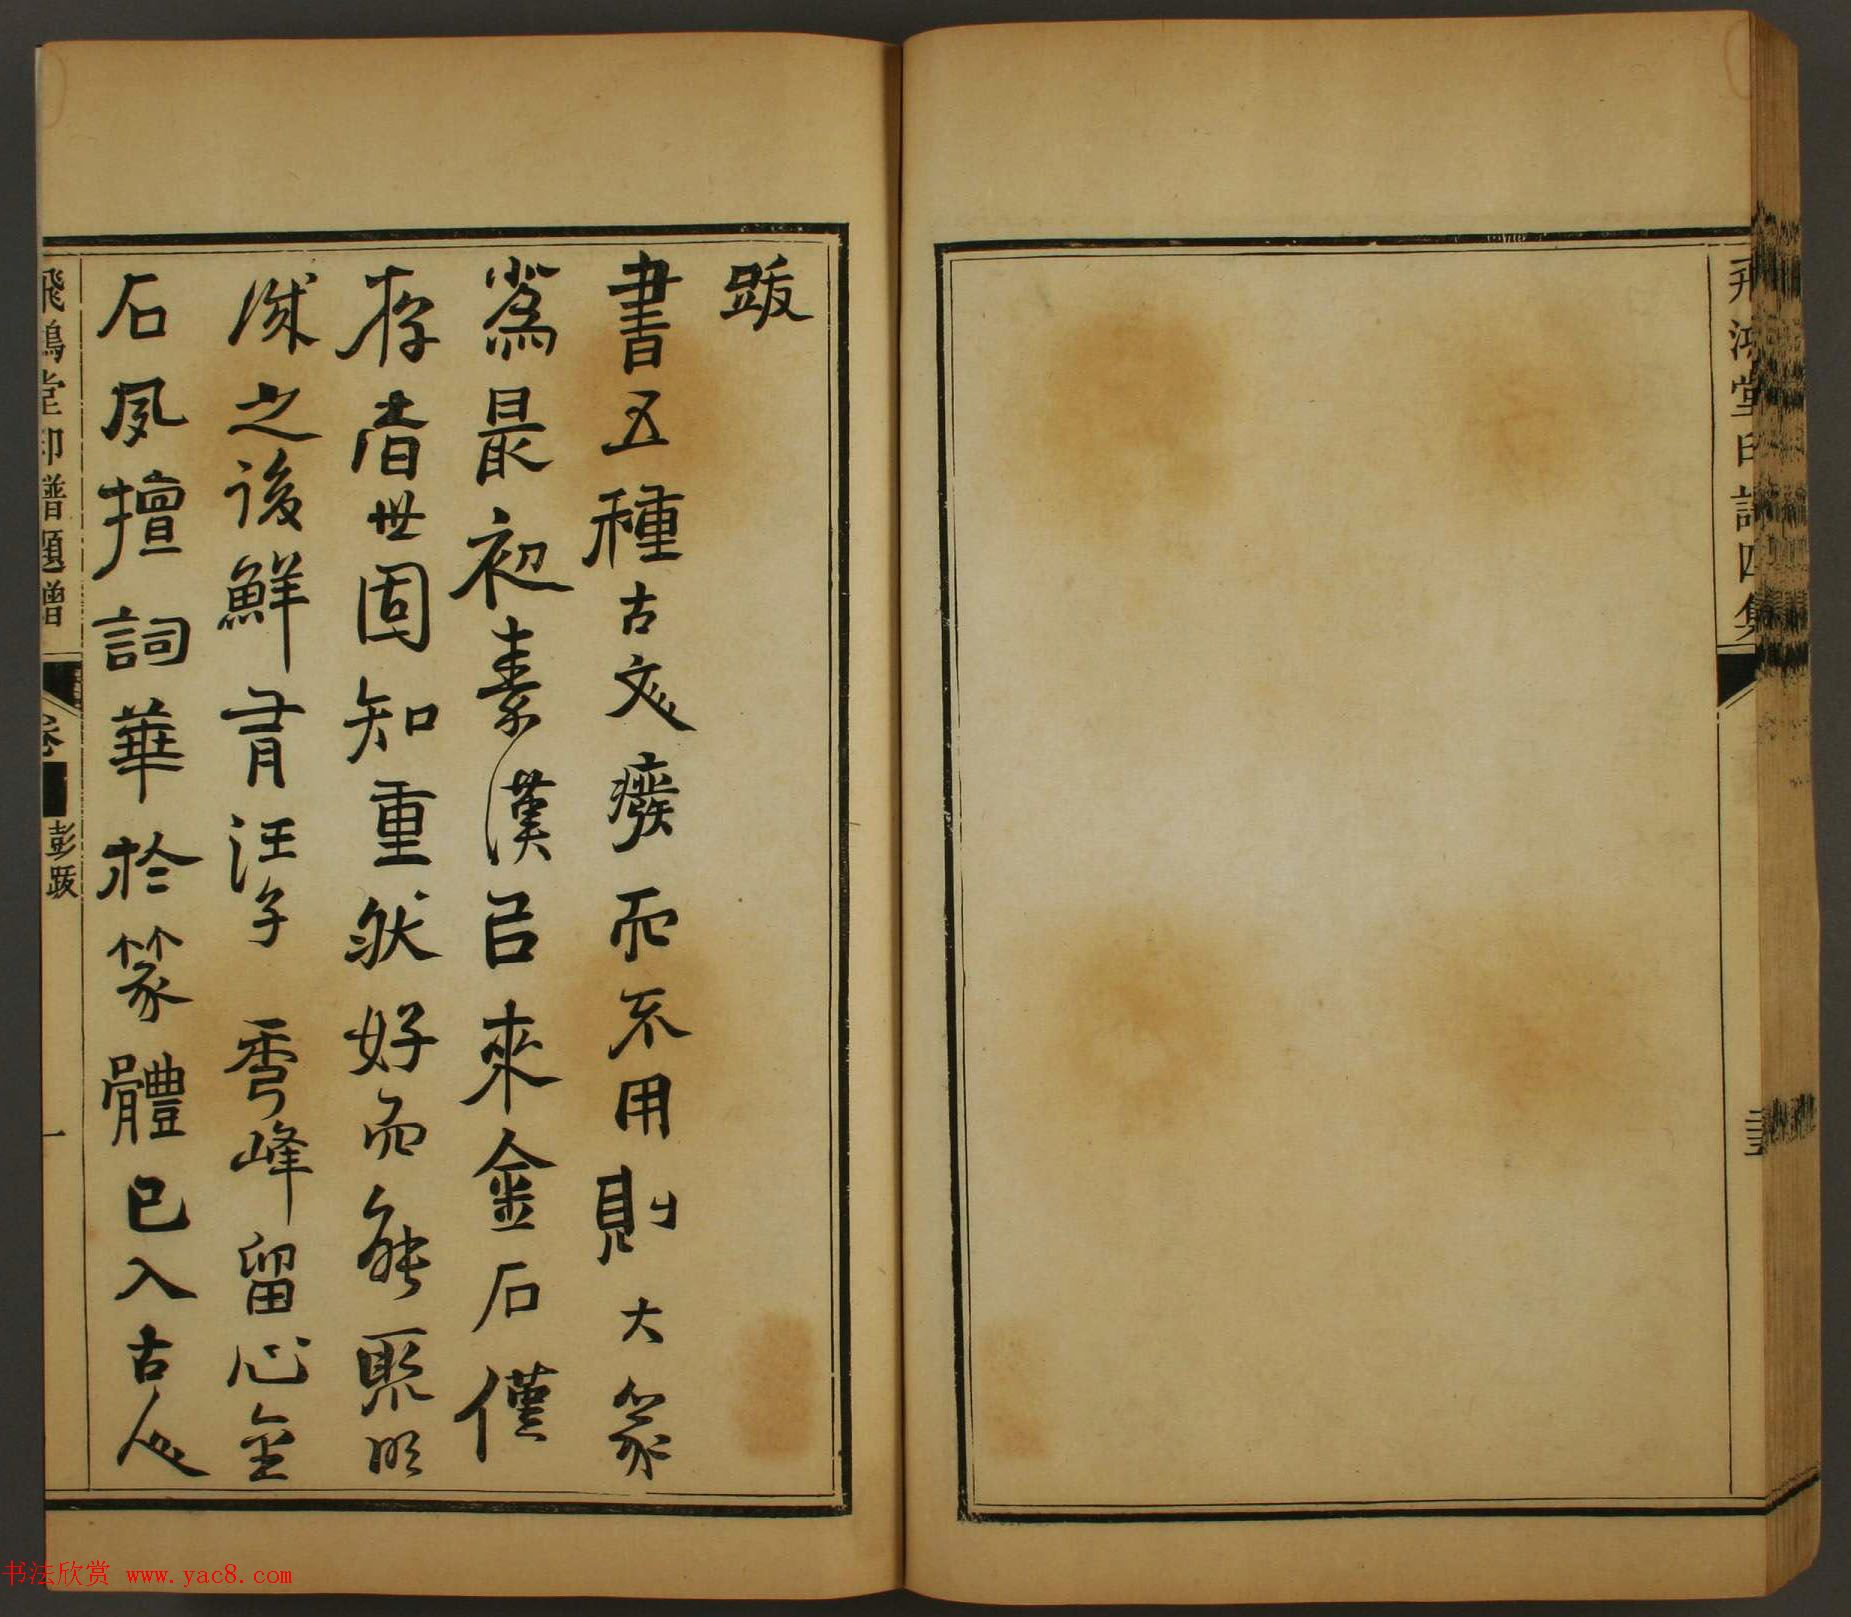 飛鴻堂印譜四集
跋
書五種古文廢而不用則大篆
爲最初秦漢㠯來金石僅
存者世固知重然好而能聚明
誠之後鮮有汪子秀峰留心金
石夙擅詞華於篆體已入古人
飛鴻堂印譜題贈 卷 彭跋 一
书法欣赏 www.yac8.com